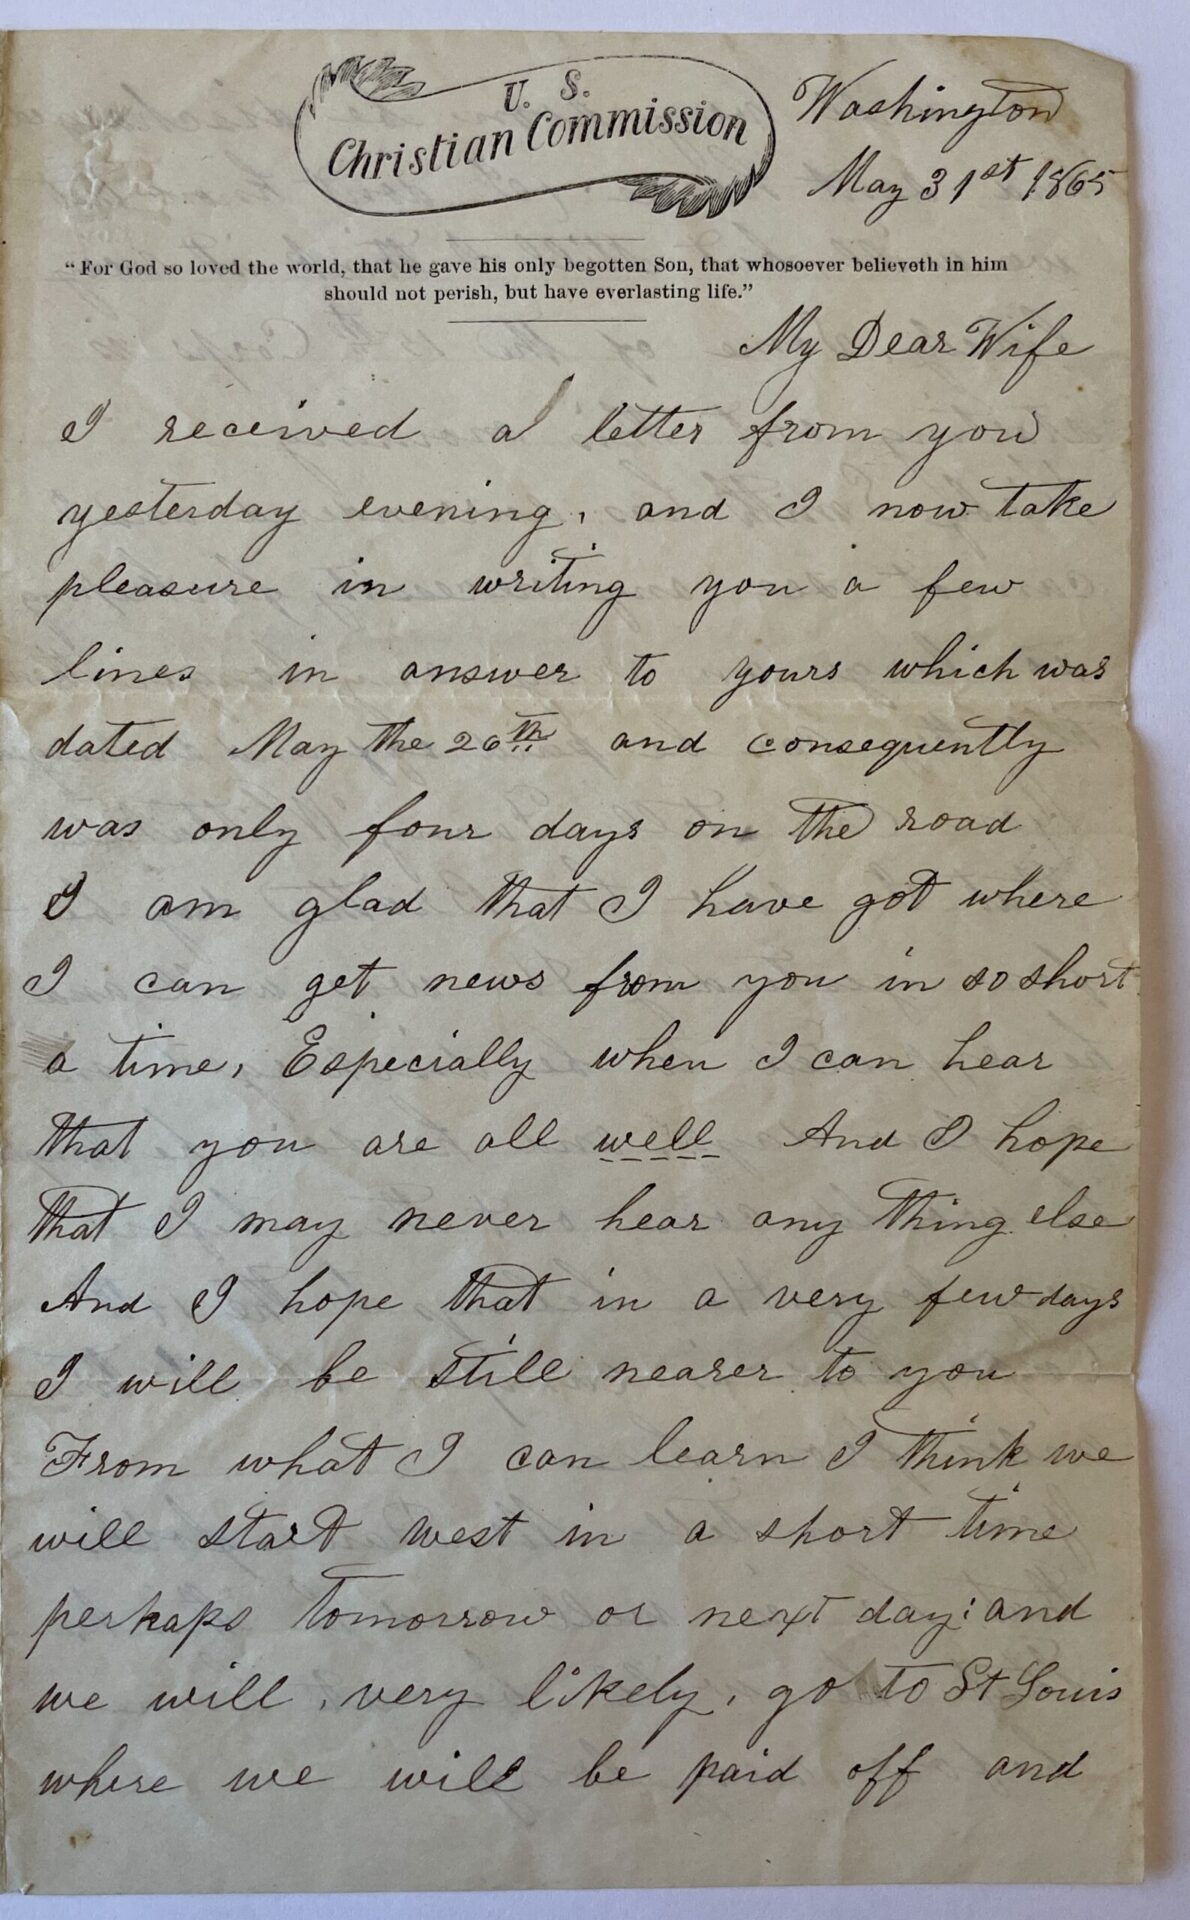 U. S.
Christian Commission
Washington
May 31st 1865
"For God so loved the world, that he gave his only begotten Son, that whosoever believeth in him
should not perish, but have everlasting life."
My Dear Wife
I received a letter from you
yesterday evening, and I now take
pleasure in writing you a few
lines in answer to yours which was
dated May the 26th and consequently
was only four days on the road
I am glad that I have got where
I can get news from you in so short
a time, Especially when I can hear
that you are all well And I hope
that I may never hear any thing else
And I hope that in a very few days
I will be still nearer to you
From what I can learn I think we
will start west in a short time
perhaps tomorrow or next day: and
we will, very likely, go to St Louis
where we will be paid off and